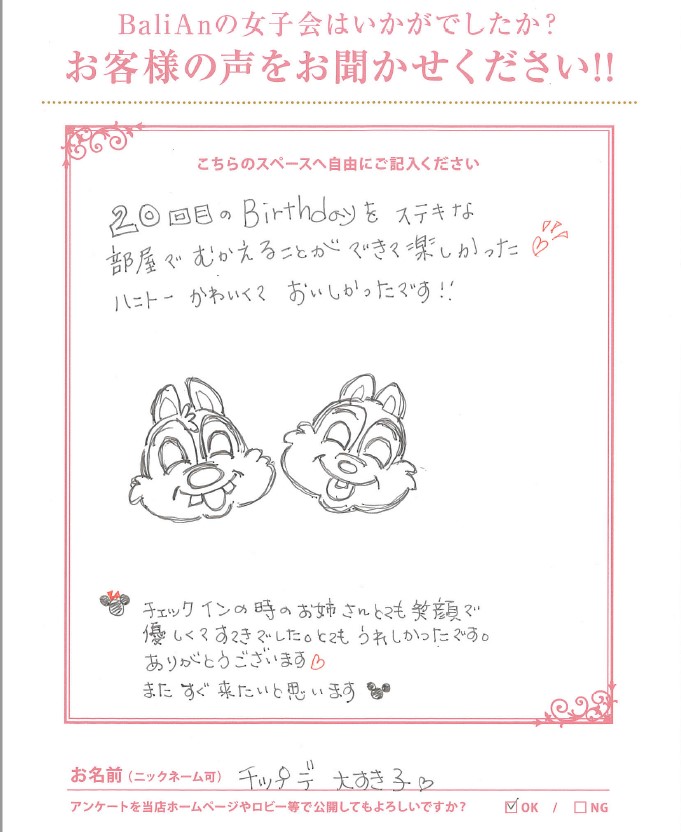 BaliAnの女子会はいかがでしたか?
お客様の声をお聞かせください!!
こちらのスペースへ自由にご記入ください
20回目のBirthdayを ステキな
部屋で むかえることが できて楽しかった
ハニトー かわいくて おいしかったです!!
チェックインの時のお姉さんとても笑顔で
優しくてすてきでした。とても うれしかったです。
ありがとうございます
また すぐ 来たいと思います
お名前(ニックネーム可) チップデ 大すき子
アンケートを当店ホームページやロビー等で公開してもよろしいですか? OK / NG